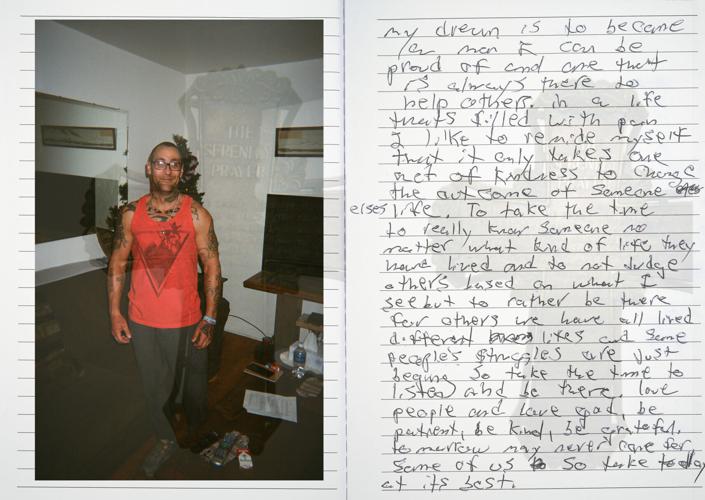 THE
SERENITY
PRAYER
my dream is to become
a man I can be
proud of and one that
is always there to
help others. in a life
thats filled with pain
I like to remide myself
that it only takes one
act of kindness to change
the out come of someone
elses life. To take the time
to really know someone no
matter what kind of life they
have lived and to not Judge
others based on what I
see but to rather be there
for others we have all lived
different lifes and some
people's struggles are Just
begun. So take the time to
listen and be there, love
people and love god, be
patient, be kind, be grateful,
tomorrow may never come for
some of us so take today
at its best.